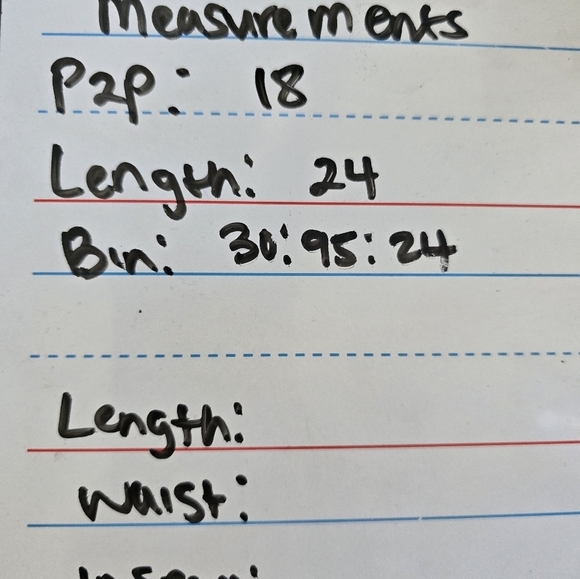 Measurements
P2P: 18
Length: 24
Bin: 30:95:24
Length:
Waist:
Inseam: